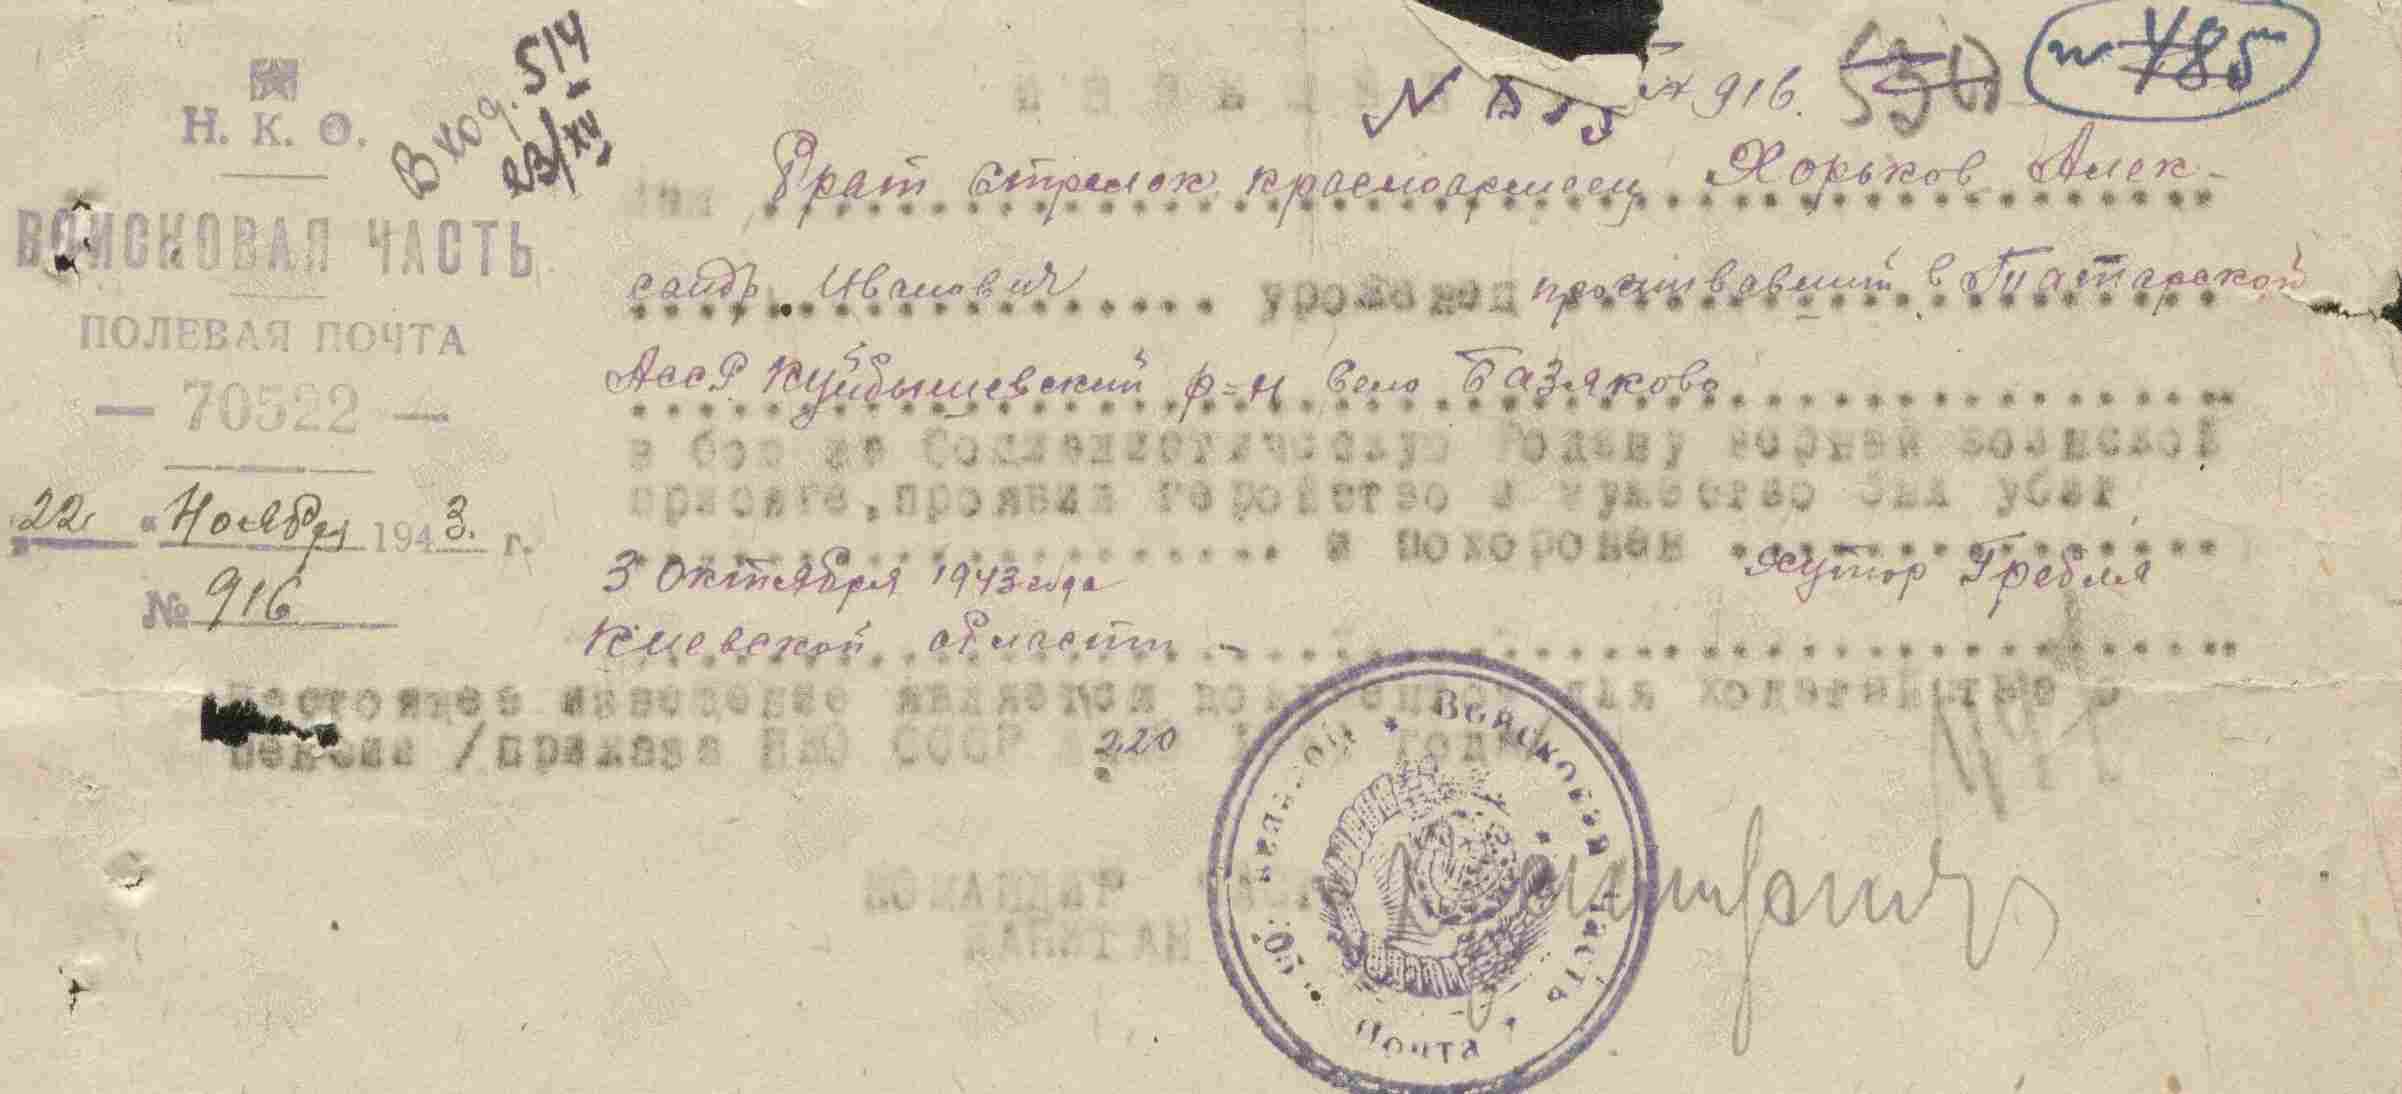 Н. К. О.
ВОЙСКОВАЯ ЧАСТЬ
ПОЛЕВАЯ ПОЧТА
— 70522 —
22 " Ноября 1943. г.
№ 916
Вход. 514
23/XII
№ 916.
485
Брат стрелок красноармеец Хорьков Алек-
сандр Иванович уроженец проживавший в Татарской
АссР Куйбышевский р-н село Базяково
в бою за Социалистическую Родину верный воинской
присяге, проявив геройство и мужество был убит
3 Октября 1943 года и похоронен хутор Гребля
Киевской области -
Настоящее извещение является для ходатайства о
пенсии /приказ НКО СССР 220
КОМАНДИР
КАПИТАН
Войсковая часть
Полевой почта